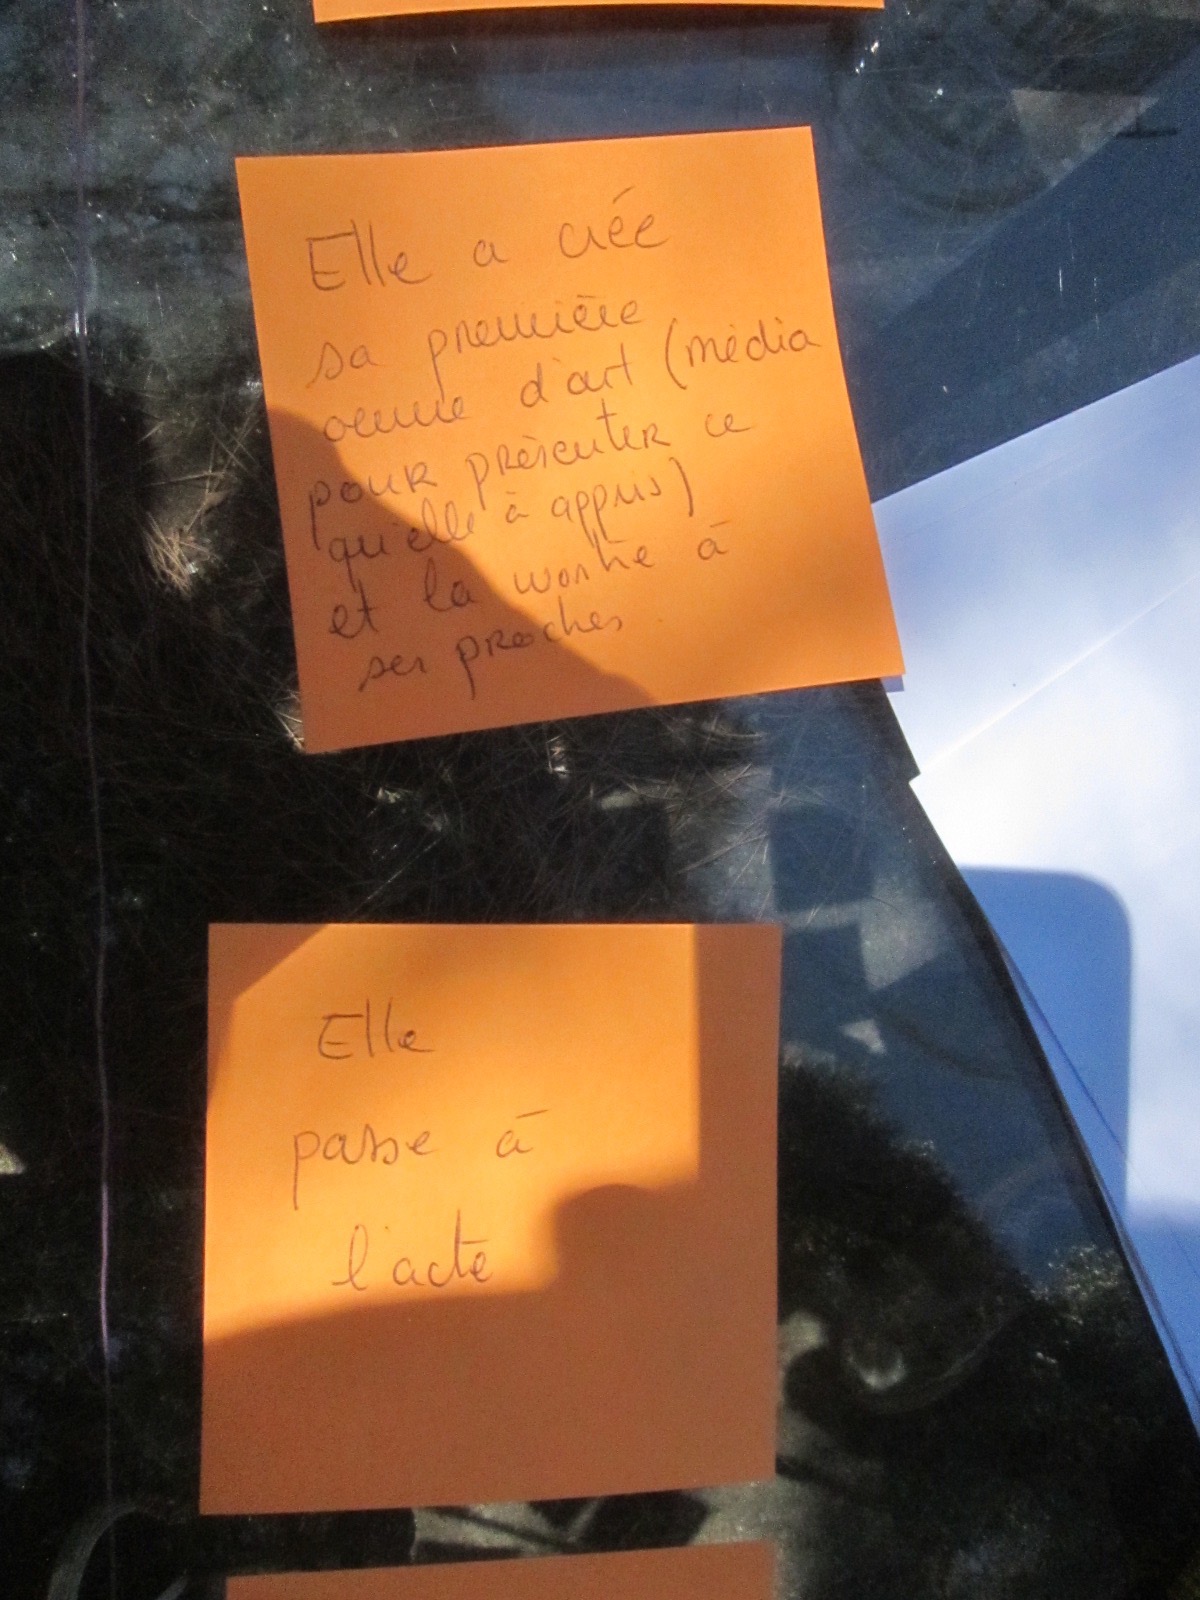 Elle a créé
sa première
oeuvre d'art (média
pour présenter ce
qu'elle à appris)
et la montre à
ses proches.
Elle
passe à
l'acte